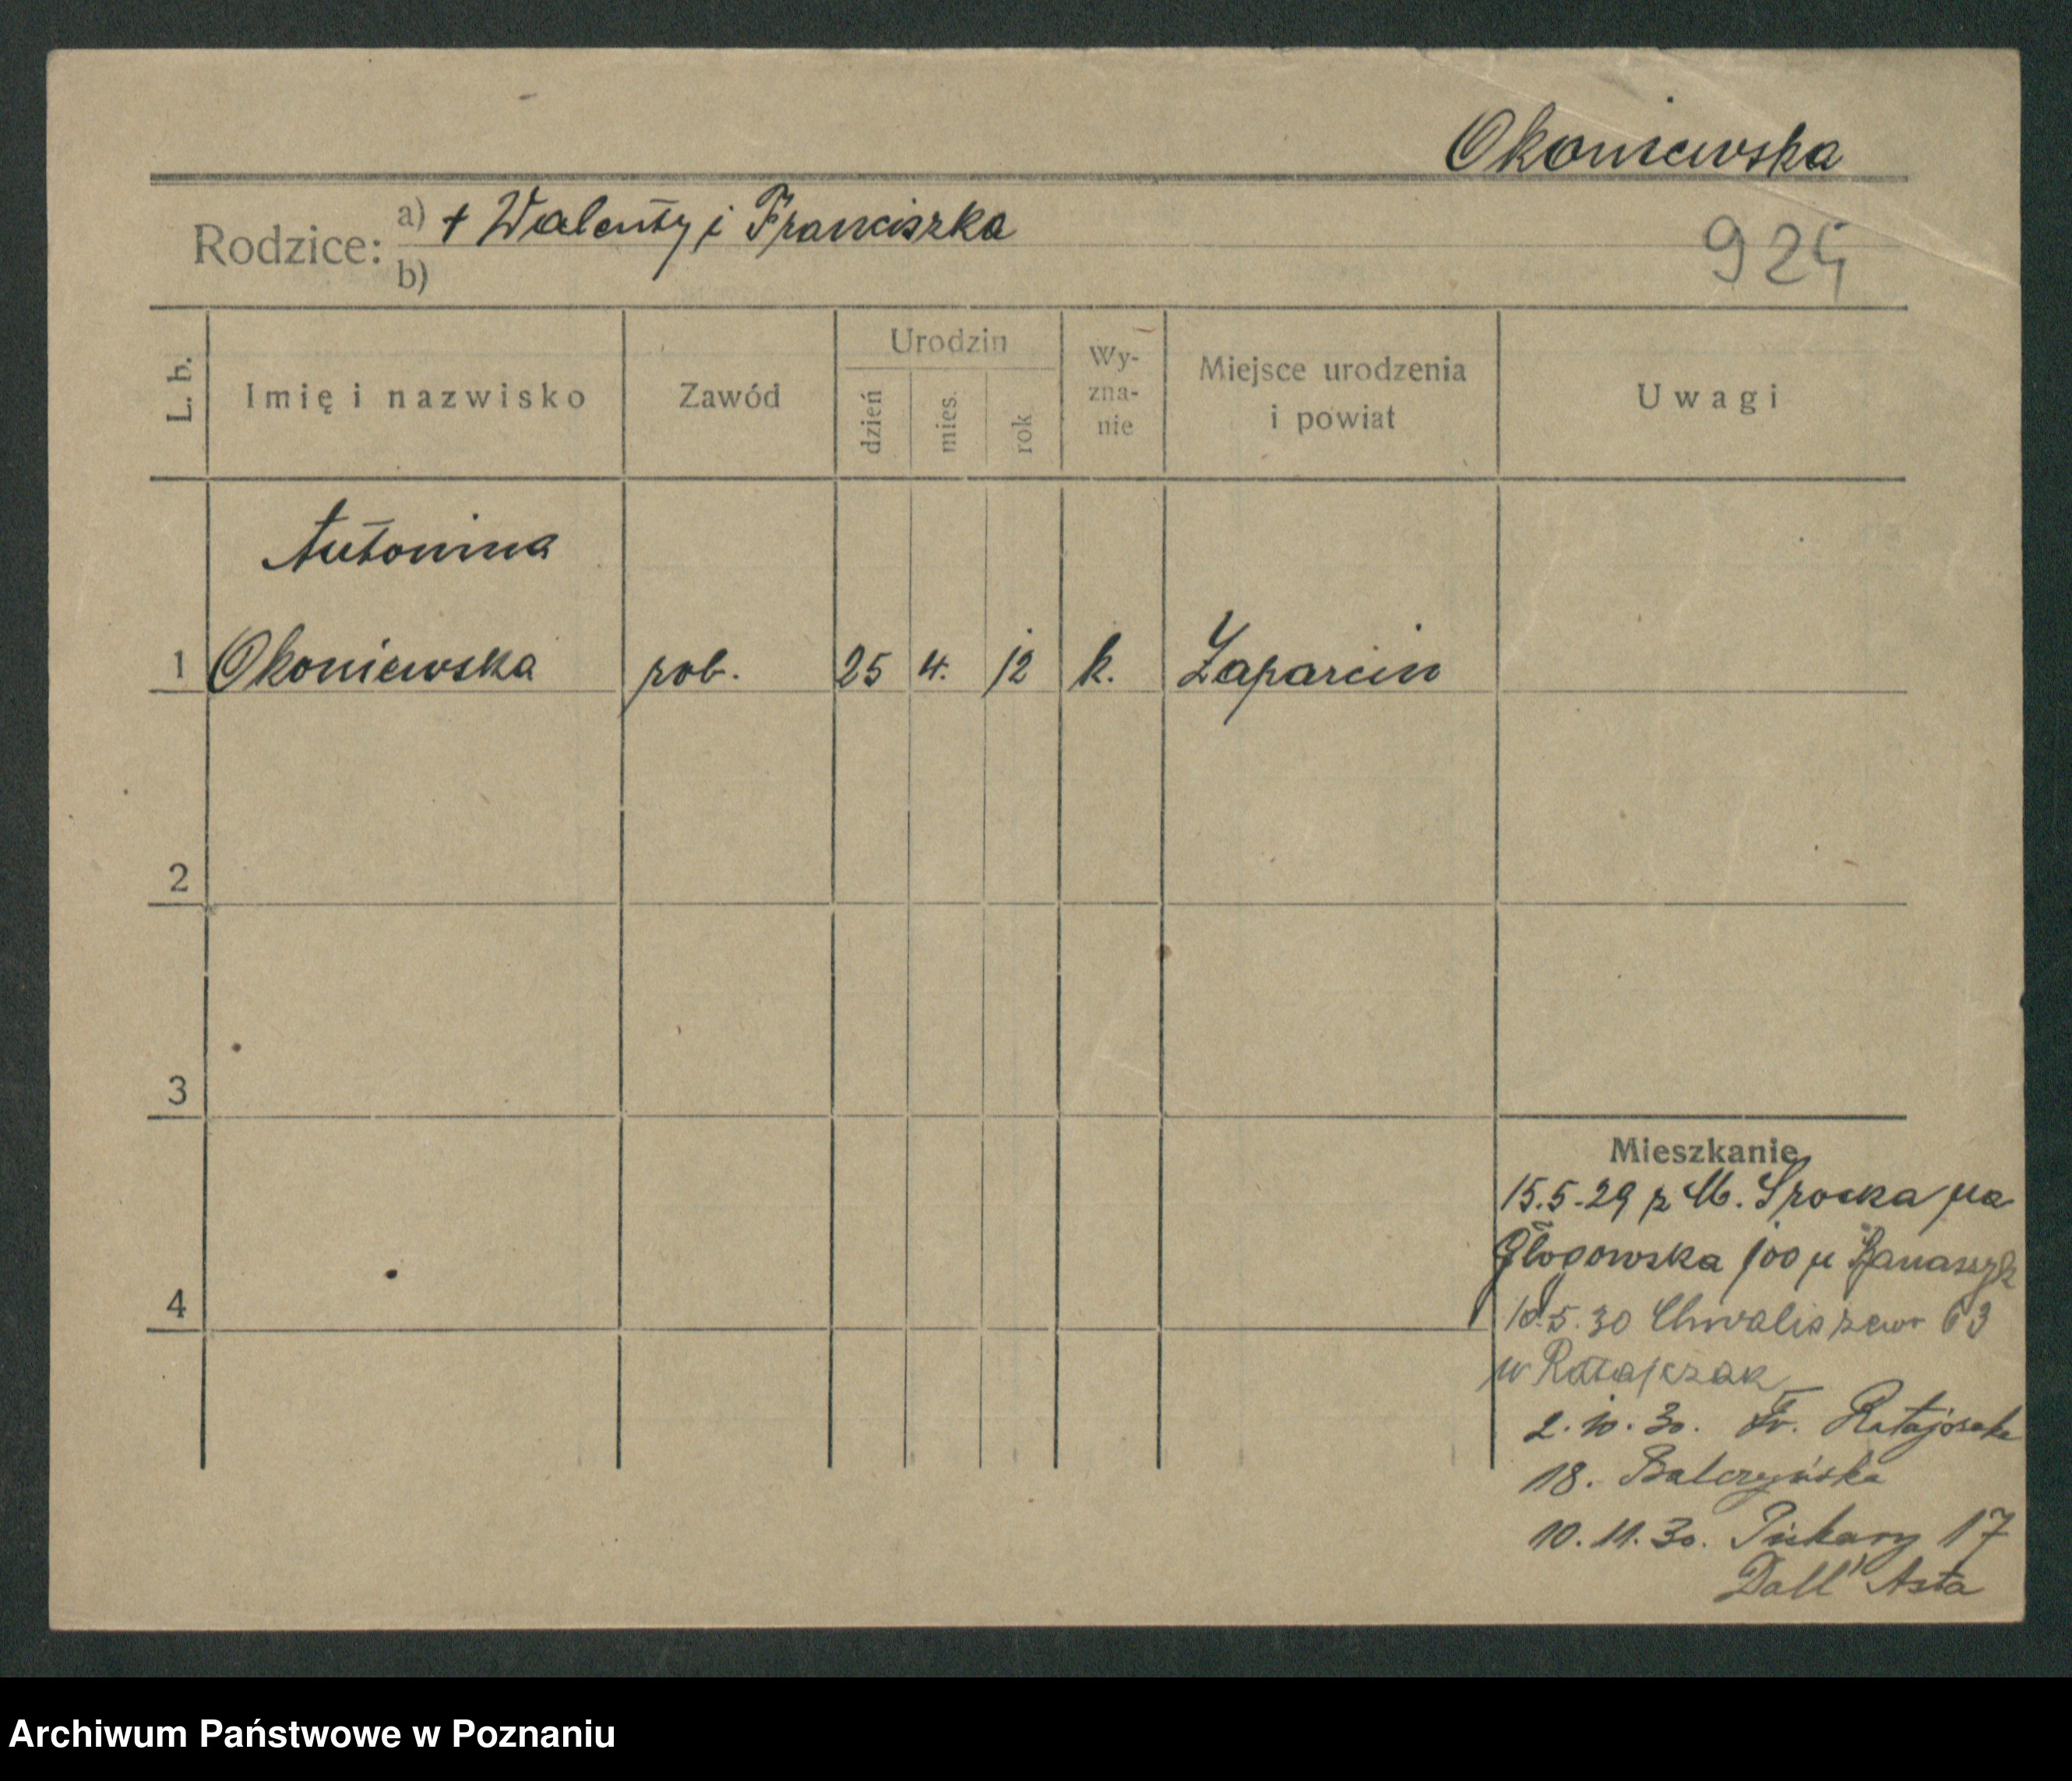 Okoniewska
Rodzice: a) + Walenty i Franciszka
b)
925
L. b.
Imię i nazwisko
Zawód
Urodzin
dzień
mies.
rok
Wy-
zna-
nie
Miejsce urodzenia
i powiat
Uwagi
Antonina
1 Okoniewska rob. 25 4. 12 k. Zaparcin
2
3
4
Mieszkanie
15.5.29 z M. Srocka na
Głogowska 100 u Banaszyk
10.5.30 Chwaliszewo 63
u Ratajczak
2.10.30. Fr. Ratajczaka
18. Balczyńska
10.11.30. Piekary 17
Dall' Asta
Archiwum Państwowe w Poznaniu